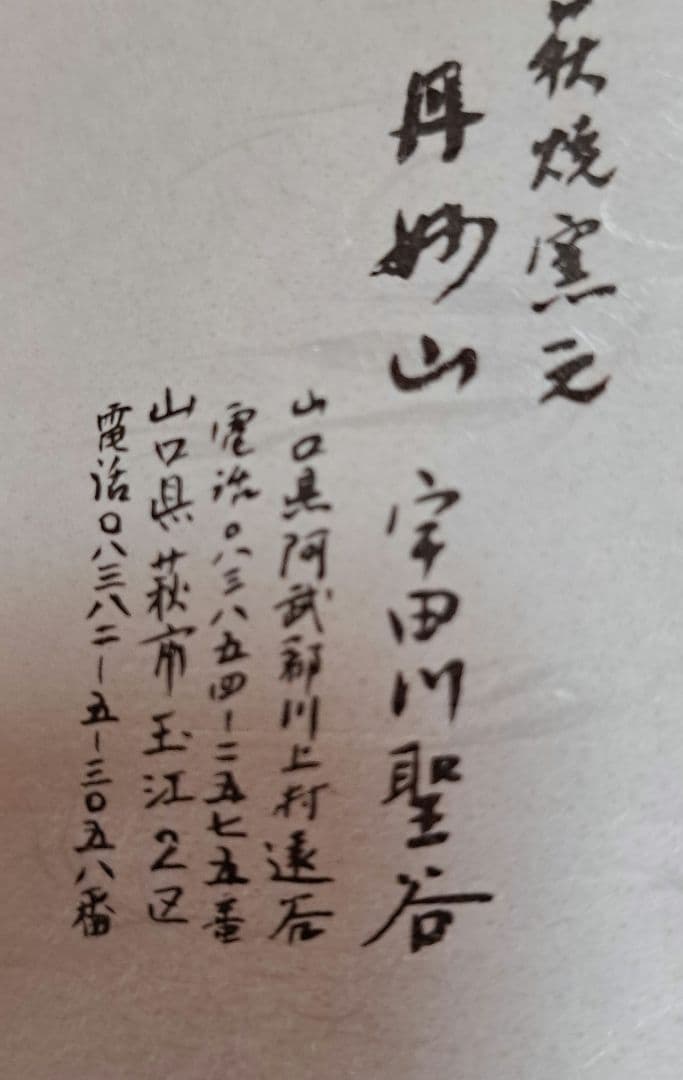 萩焼窯元
丹妙山 宇田川聖谷
山口県阿武郡川上村遠谷
電話〇八三八五四-二五七五番
山口県萩市玉江2区
電話〇八三八二-五-三〇五八番